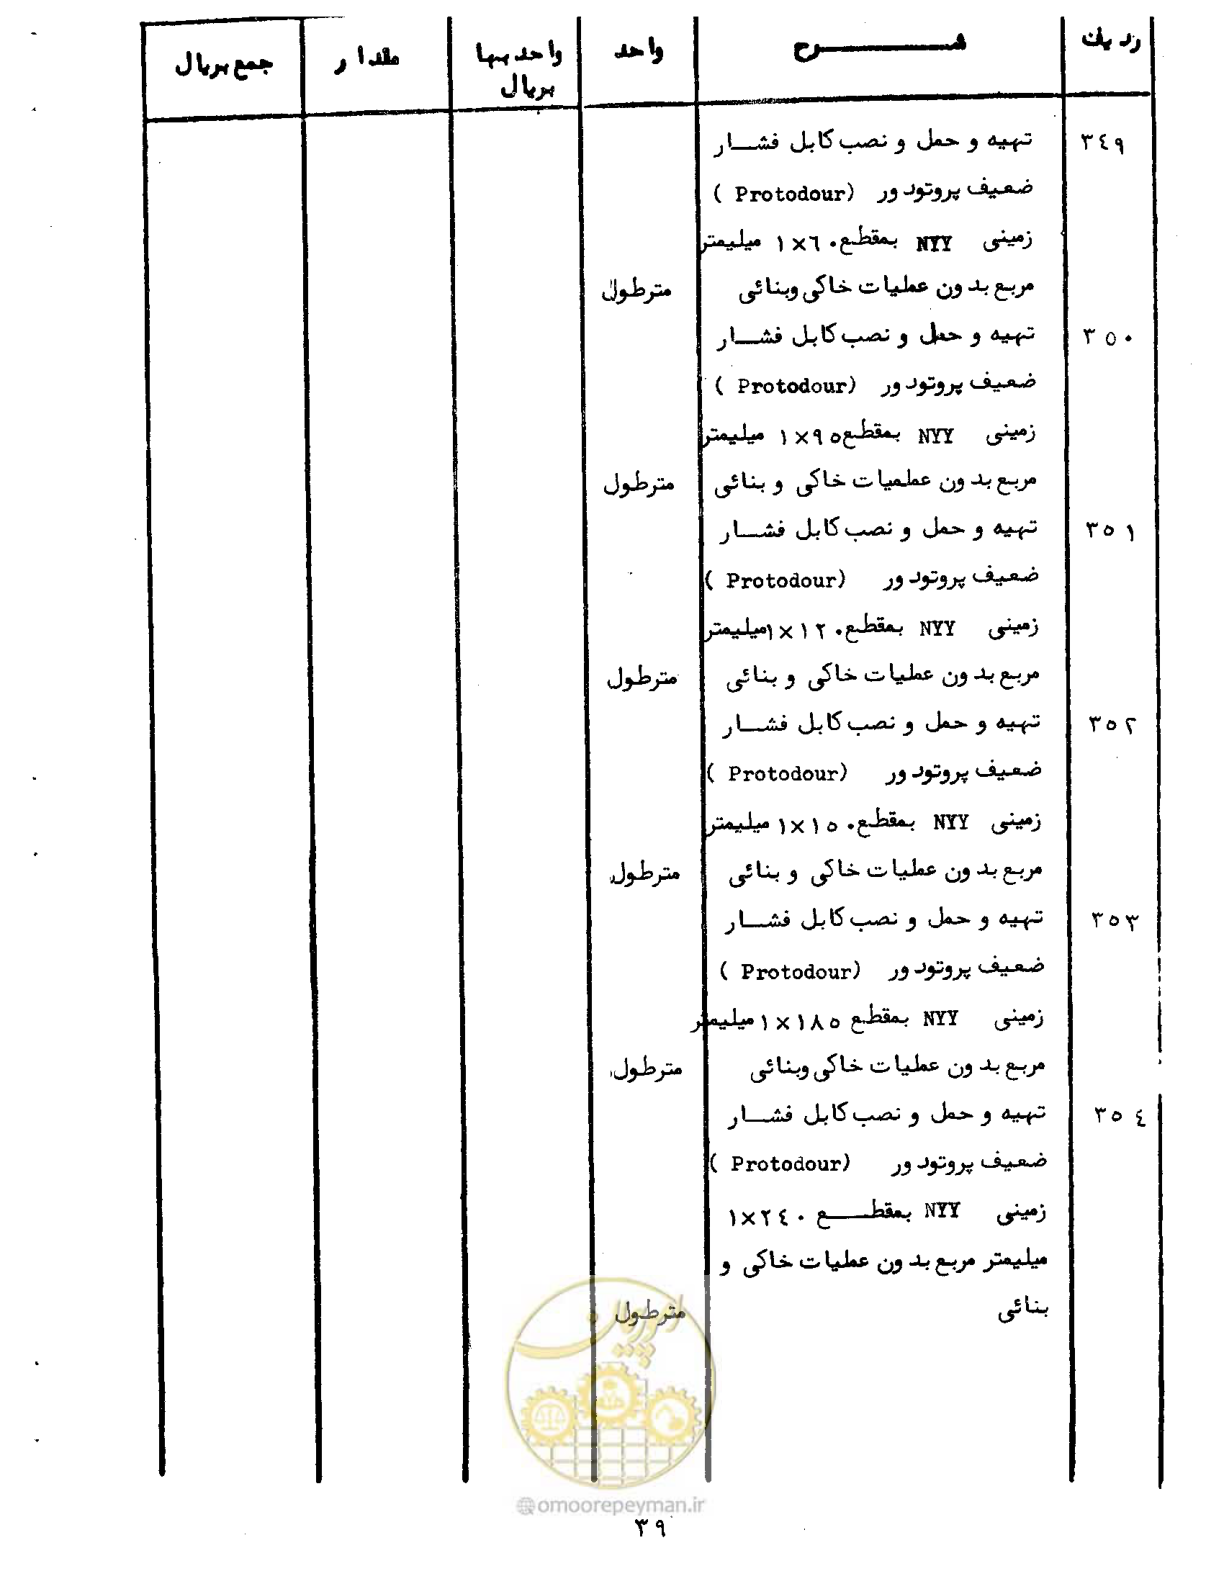 ردیف شرح واحد واحد بها مقدار جمع بریال
بریال
٣٤٩ تهیه و حمل و نصب کابل فشار
ضعیف پروتودور (Protodour)
زمینی NYY بمقطع ١×٦٠ میلیمتر
مربع بدون عملیات خاکی وبنائی مترطول
٣٥٠ تهیه و حمل و نصب کابل فشار
ضعیف پروتودور (Protodour)
زمینی NYY بمقطع ١×٩٥ میلیمتر
مربع بدون عملمیات خاکی و بنائی مترطول
٣٥١ تهیه و حمل و نصب کابل فشار
ضعیف پروتودور (Protodour)
زمینی NYY بمقطع ١×١٢٠ میلیمتر
مربع بدون عملیات خاکی و بنائی مترطول
٣٥٢ تهیه و حمل و نصب کابل فشار
ضعیف پروتودور (Protodour)
زمینی NYY بمقطع ١×١٥٠ میلیمتر
مربع بدون عملیات خاکی و بنائی مترطول
٣٥٣ تهیه و حمل و نصب کابل فشار
ضعیف پروتودور (Protodour)
زمینی NYY بمقطع ١×١٨٥ میلیمتر
مربع بدون عملیات خاکی وبنائی مترطول
٣٥٤ تهیه و حمل و نصب کابل فشار
ضعیف پروتودور (Protodour)
زمینی NYY بمقطع ١×٢٤٠
میلیمتر مربع بدون عملیات خاکی و
بنائی مترطول
امور پیمان
@omoorepeyman.ir
٣٩